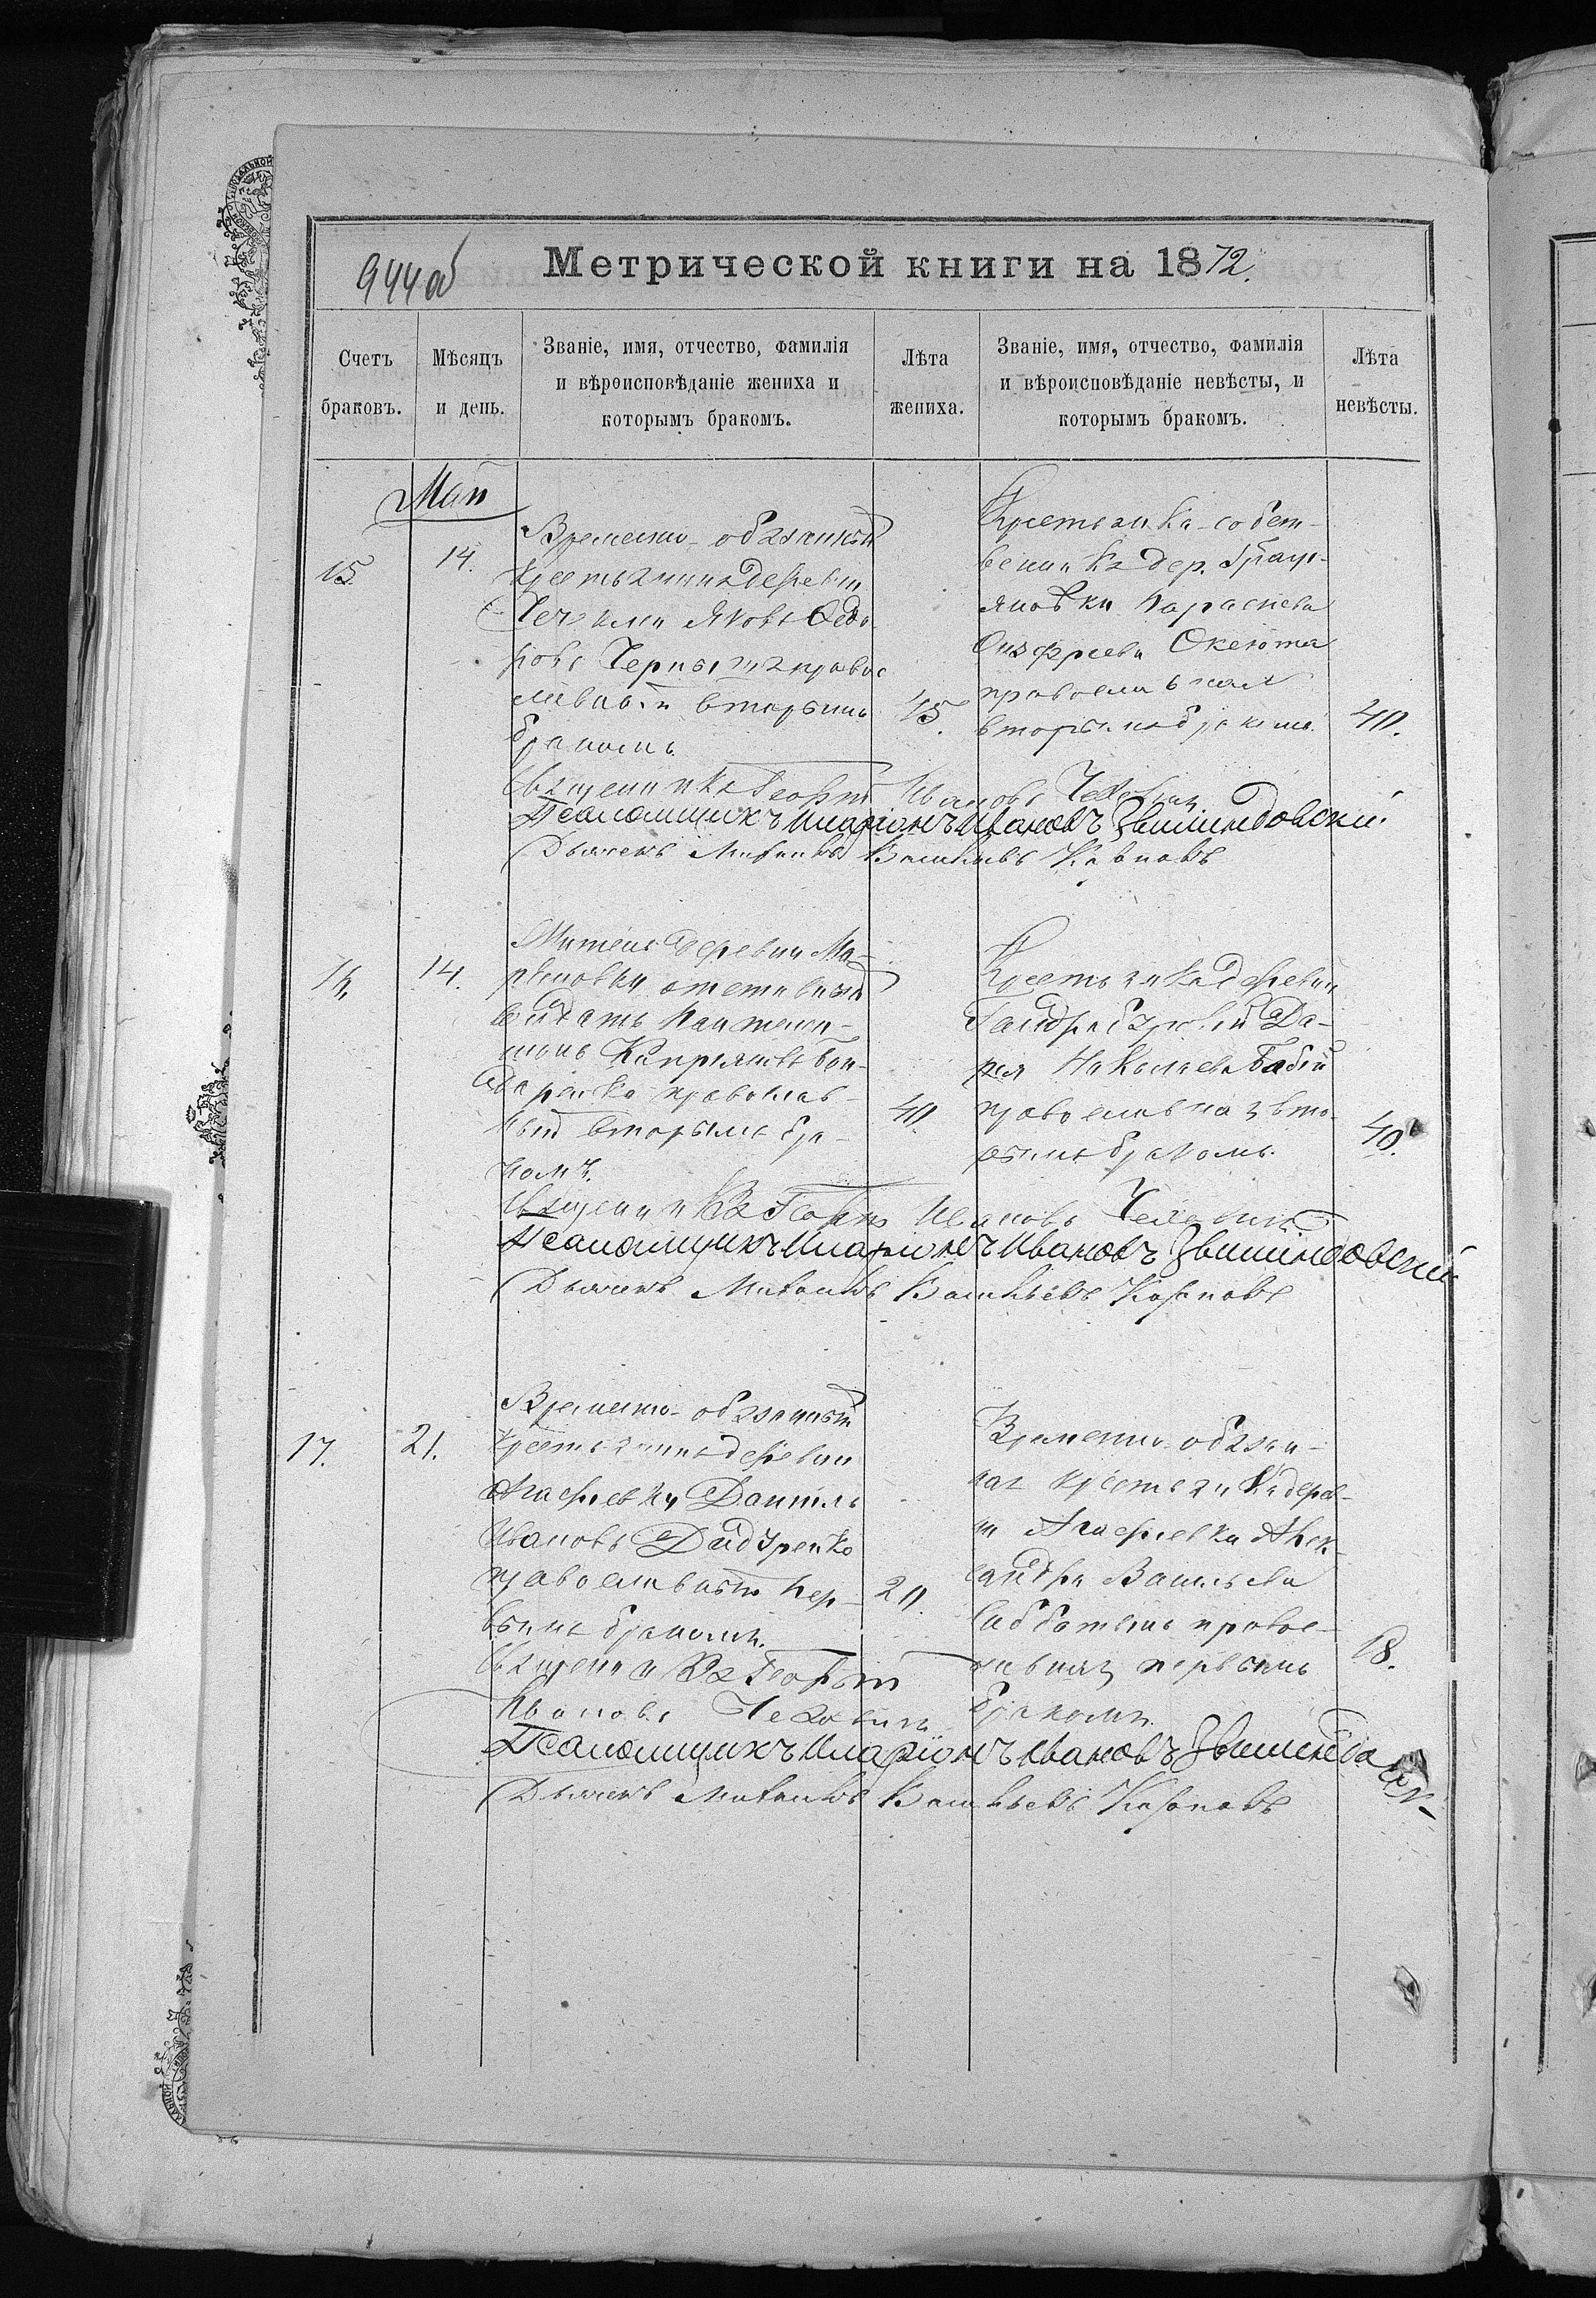 944об
Метрической книги на 1872.
Счетъ браковъ.
Мѣсяцъ и день.
Званіе, имя, отчество, фамилія
и вѣроисповѣданіе жениха и
которымъ бракомъ.
Лѣта жениха.
Званіе, имя, отчество, фамилія
и вѣроисповѣданіе невѣсты, и
которымъ бракомъ.
Лѣта невѣсты.
Май
15
14.
Временно-обязанный
крестьянинъ деревни
Яковъ Ѳедо
ровъ Черныш правос
лавный вторымъ
бракомъ
45.
Крестьянка-собст-
венника дер.
яновки Параскева
Онуфріева
православная
вторымъ бракомъ.
40.
Священникъ Георгій Ивановъ
Псаломщикъ Иларіонъ Ивановъ
Дьячекъ Михаилъ Васильевъ
16.
14.
Житель деревни Ма-
отставной
солдатъ Пантелей-
монъ Кипріяновъ Бон-
даренко православ-
ный вторымъ бра-
комъ.
40
Крестьянка деревни
Гандрабуровой Да-
рья Николаева Бабій
православная вто-
рымъ бракомъ.
40.
Священникъ Георгій Ивановъ
Псаломщикъ Иларіонъ Ивановъ
Дьячекъ Михаилъ Васильевъ
17.
21.
Временно-обязанный
крестьянинъ деревни
Агафіевки Даниилъ
Ивановъ Дидуренко
православный пер-
вымъ бракомъ.
20.
Временно-обязан-
ная крестьянка дерев-
ни Агафіевки Алек-
сандра Васильева
правос-
лавная, первымъ
бракомъ.
18.
Священникъ Георгій
Ивановъ
Псаломщикъ Иларіонъ Ивановъ
Дьячекъ Михаилъ Васильевъ